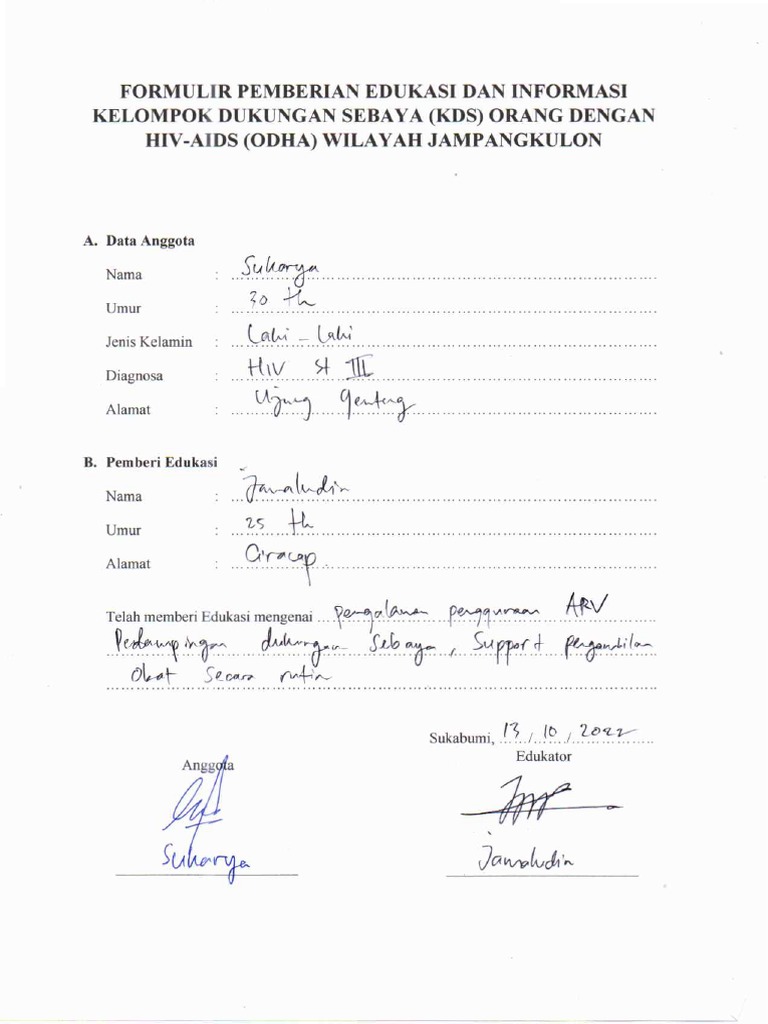 FORMULIR PEMBERIAN EDUKASI DAN INFORMASI
KELOMPOK DUKUNGAN SEBAYA (KDS) ORANG DENGAN
HIV-AIDS (ODHA) WILAYAH JAMPANGKULON
A. Data Anggota
Nama : Sukarya
Umur : 30 th
Jenis Kelamin : Laki - Laki
Diagnosa : HIV st III
Alamat : Ujung Genteng
B. Pemberi Edukasi
Nama : Jamaludin
Umur : 25 th
Alamat : Ciracap
Telah memberi Edukasi mengenai pengalaman penggunaan ARV
Pendampingan dukungan Sebaya, Support pengambilan
Obat Secara rutin
Sukabumi, 13 / 10 / 2022
Edukator
Anggota
Sukarya
Jamaludin